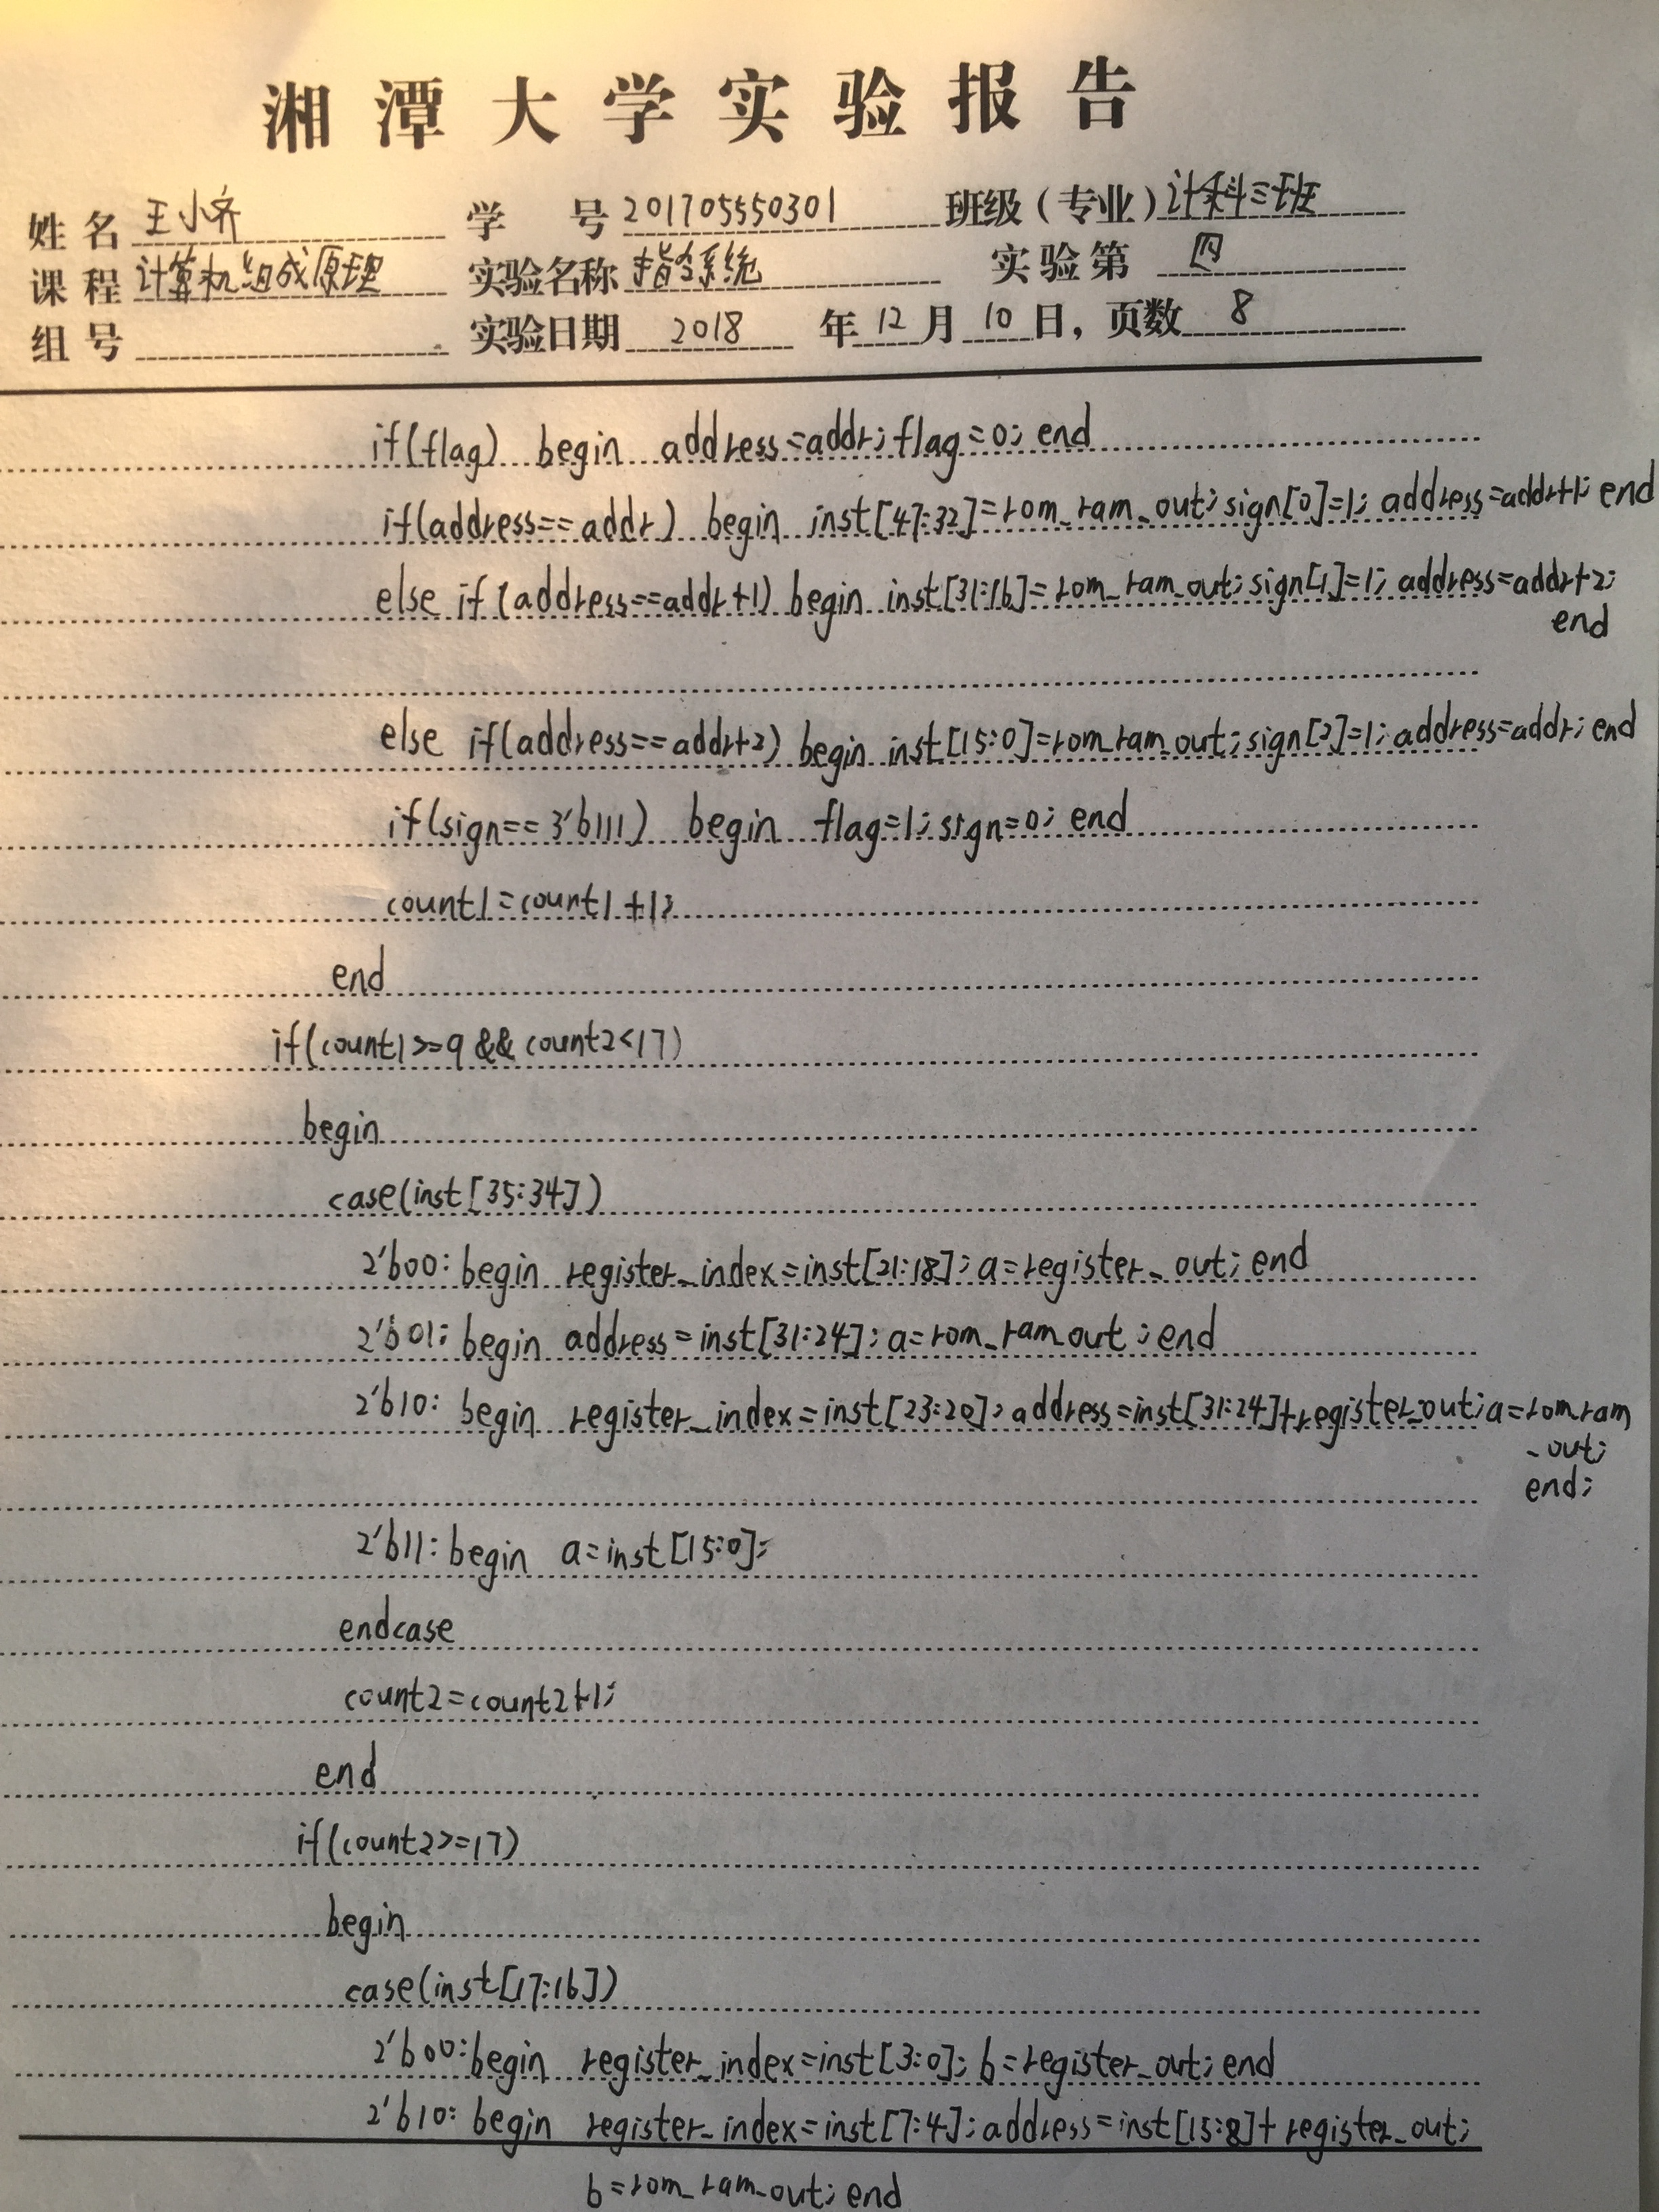 湘潭大学实验报告
姓名 王小齐 学号 201705550301 班级(专业) 计科三班
课程 计算机组成原理 实验名称 指令系统 实验第 四
组号 实验日期 2018 年 12 月 10 日, 页数 8
if(flag) begin address=addr; flag=0; end
if(address==addr) begin inst[47:32]=rom_ram_out; sign[0]=1; address=addr+1; end
else if(address==addr+1) begin inst[31:16]=rom_ram_out; sign[1]=1; address=addr+2;
end
else if(address==addr+2) begin inst[15:0]=rom_ram_out; sign[2]=1; address=addr; end
if(sign==3'b111) begin flag=1; sign=0; end
count1=count1+1;
end
if(count1>=9 && count2<17)
begin
case(inst[35:34])
2'b00: begin register_index=inst[21:18]; a=register_out; end
2'b01: begin address=inst[31:24]; a=rom_ram_out; end
2'b10: begin register_index=inst[23:20]; address=inst[31:24]+register_out; a=rom_ram
_out;
end;
2'b11: begin a=inst[15:0];
endcase
count2=count2+1;
end
if(count2>=17)
begin
case(inst[17:16])
2'b00: begin register_index=inst[3:0]; b=register_out; end
2'b10: begin register_index=inst[7:4]; address=inst[15:8]+register_out;
b=rom_ram_out; end